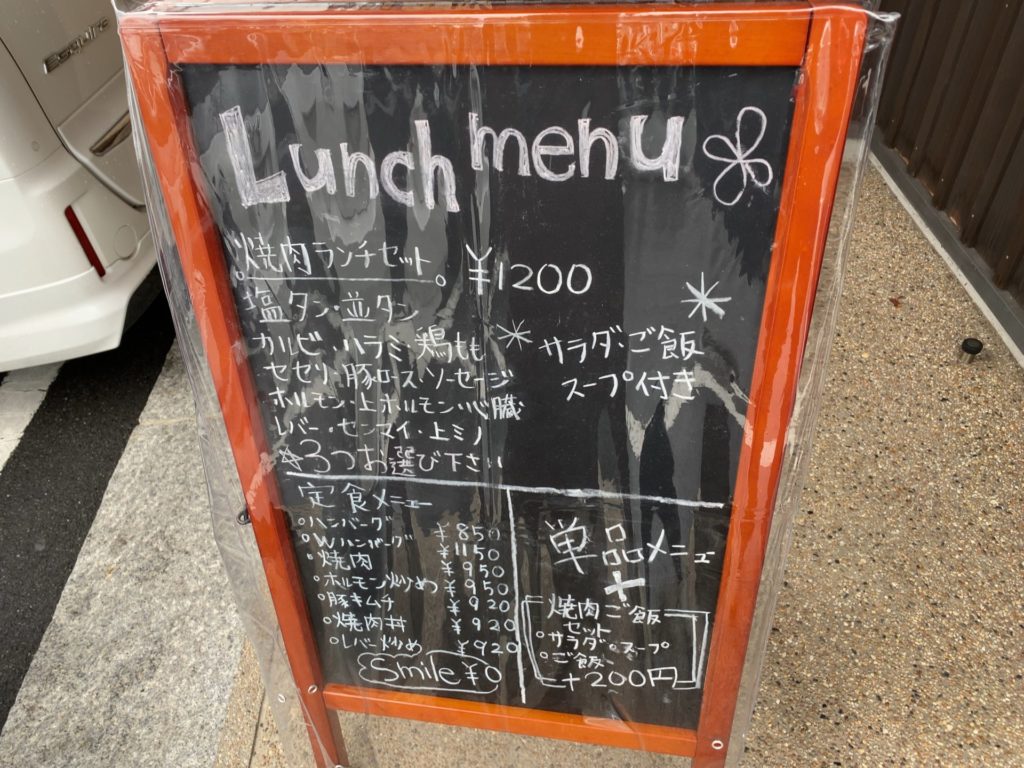 Esquire
Lunch menu
焼肉ランチセット ¥1200
塩タン・並タン
カルビ・ハラミ・鶏もも
セセリ・豚ロース・ソーセージ
ホルモン・上ホルモン・心臓
レバー・センマイ・上ミノ
3つお選び下さい
サラダ・ご飯
スープ付き
定食メニュー
ハンバーグ ¥850
Wハンバーグ ¥1150
焼肉 ¥950
ホルモン炒め ¥950
豚キムチ ¥920
焼肉丼 ¥920
レバー炒め ¥920
Smile ¥0
単品メニュー
+
焼肉ご飯
セット
サラダ・スープ
ご飯
+200円